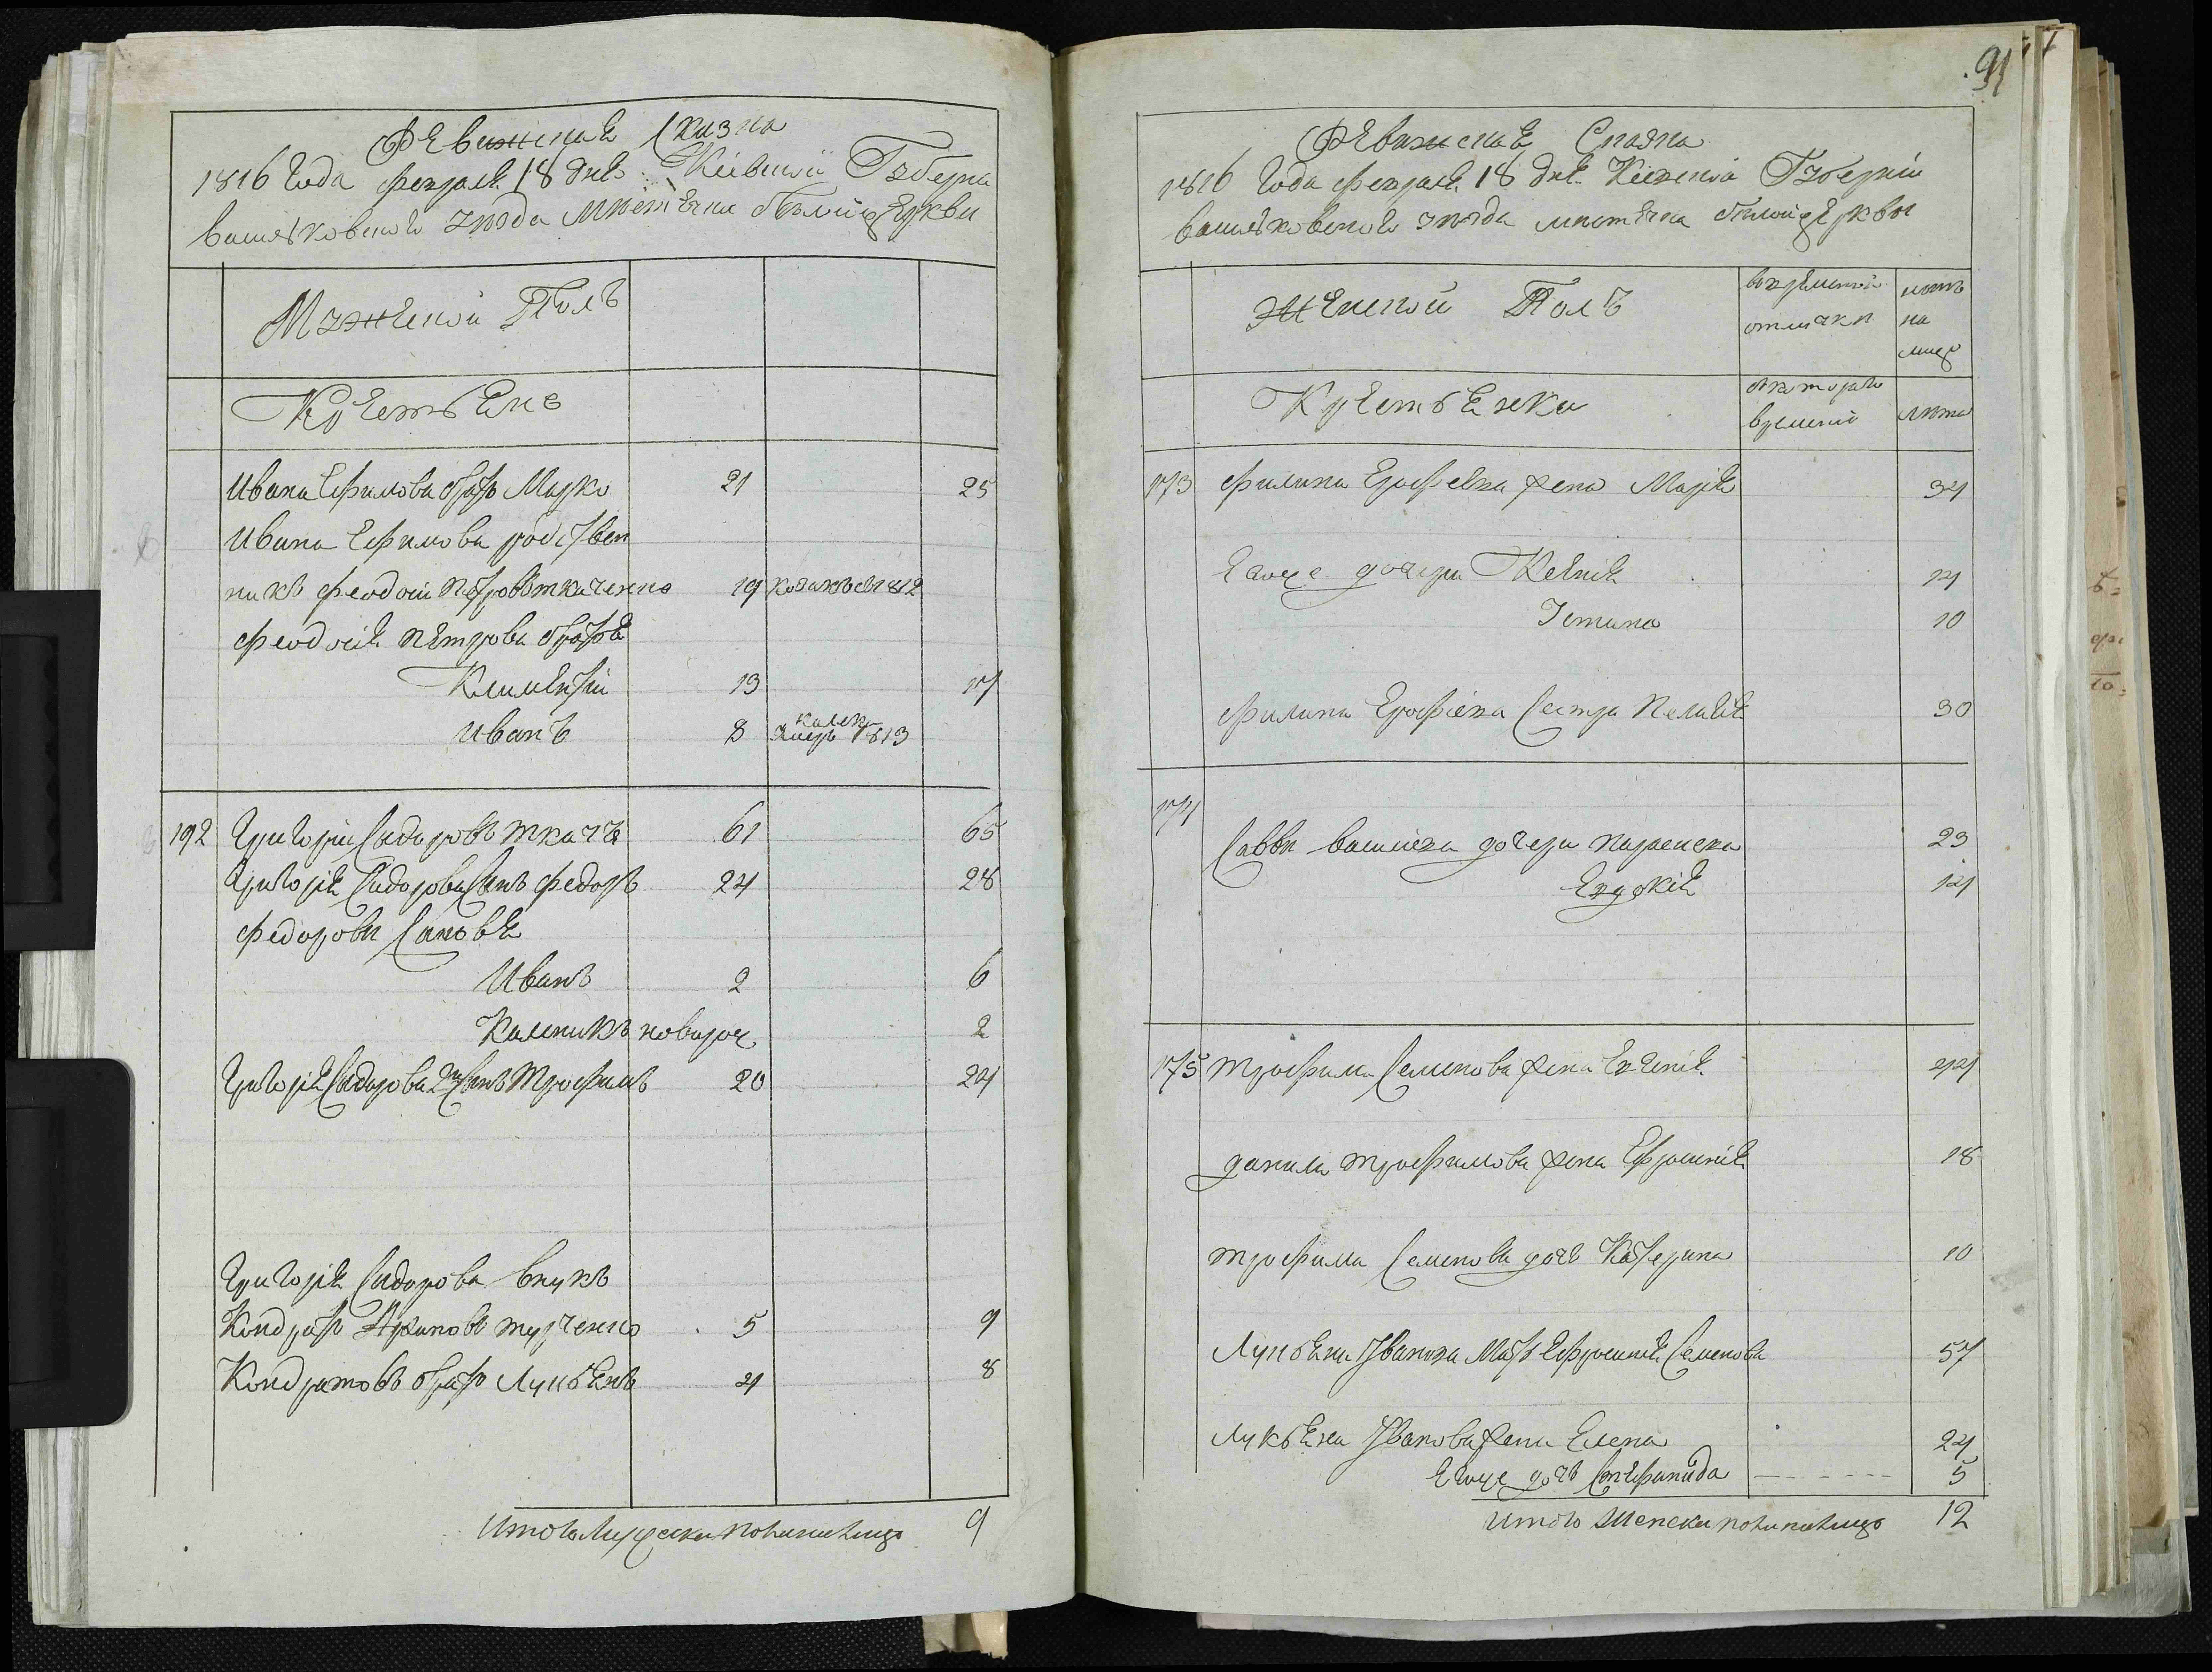 Ревижская Сказка
1816 Года февраля 18 дня Кіевской Губерни
васильковского уезда Местечка белой Церкви
Мужеской Полъ
Крестьяне
Ивана Ефимова братъ Марко 21 25
Ивана Ефимова родствен
никъ феодосій Петровъ ткаченко 19 1812
феодосія Петрова братья
Климентій 13 17
Иванъ 8 1813
192 Григорій Сидоровъ ткачъ 61 65
Григорія Сидорова Сынъ Федоръ 24 28
Федоровы Сыновья
Иванъ 2 6
Калникъ новорож 2
Григорія Сидорова 2й Сынъ Трофимъ 20 24
Григорія Сидорова внукъ
Кондратъ 5 9
Кондратовъ братъ Лукьянъ 4 8
Итого Мужеска пола налицо 9
91
Ревижская Сказка
1816 Года февраля 18 дня Кіевской Губерніи
васильковского уезда местечка белой церквы
Женской Полъ
временной отлучки
ныне на лицо
Крестьянки
с которого времени
лета
173 Филипа Ерофеева жена Марія 34
Егоже дочери Ксенія 14
Устина 10
Филипа Ерофіева Сестра Пелагія 30
174
Саввы васильева дочери параскева 23
Евдокія 14
175 трофима Семенова жена Евгенія 44
данила трофимова жена Ефросинія 18
трофима Семенова дочь Катерина 10
Лукьяна Иванова Мать Ефросинія Семенова 57
Лукьяна Иванова жена Елена 24
Егоже дочь Стефанида 5
Итого Женска пола налицо 12